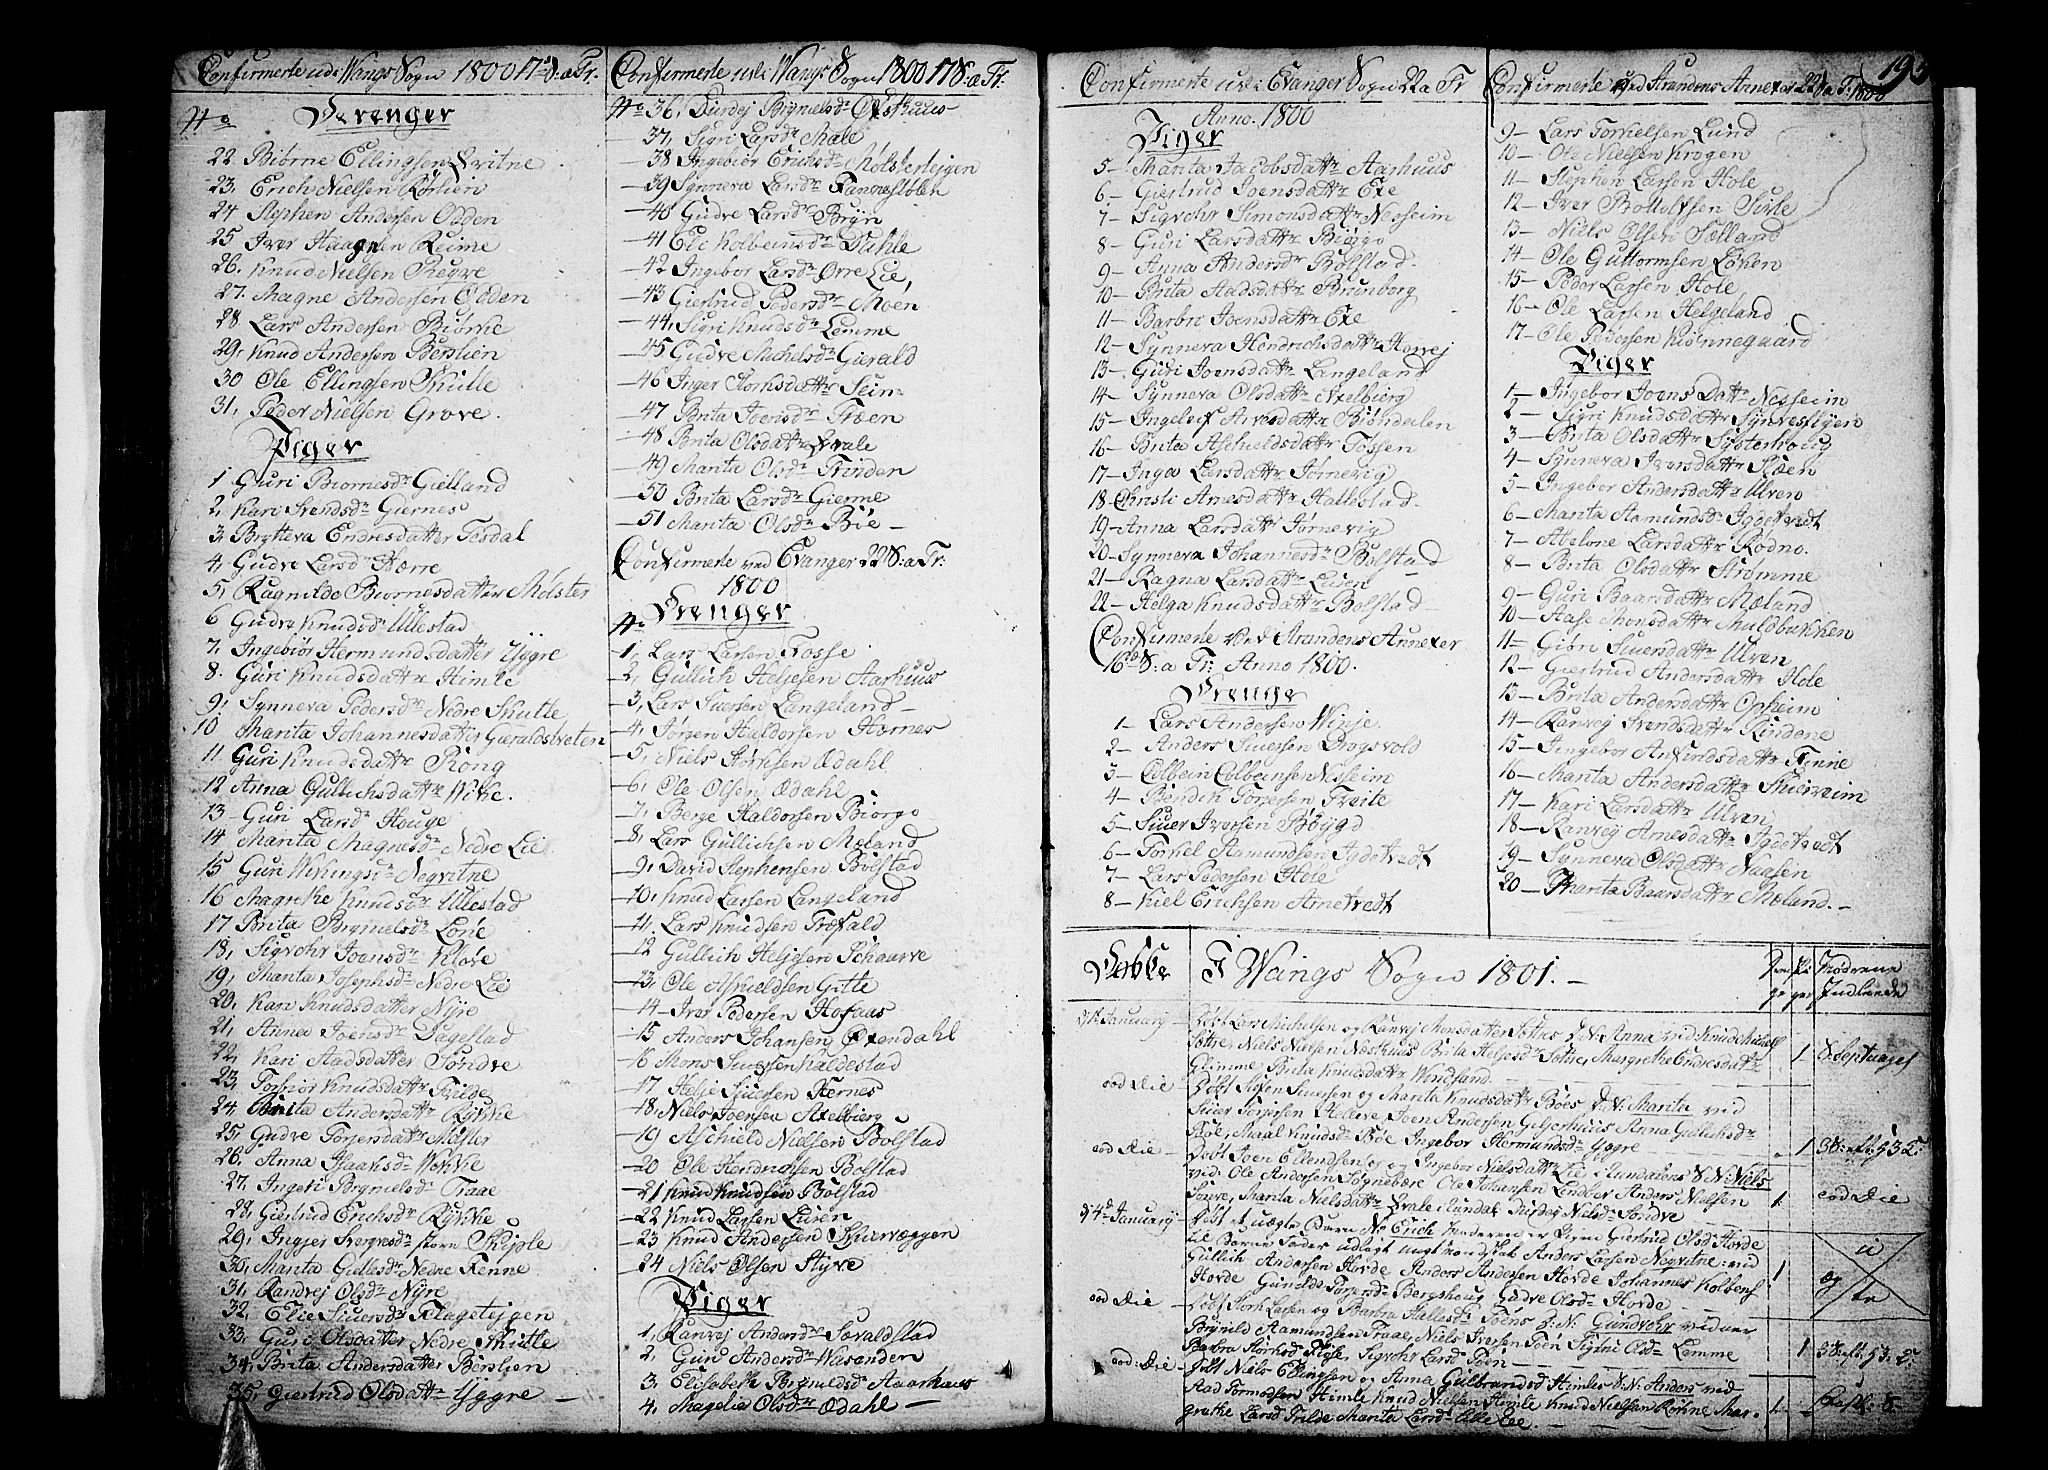 Confirmerte udi Wangs Sogn 1800 17de S: a Tr.
No Drenger
22 Biørne Ellingsen Qvitne
23, Erich Nielsen Rørlien
24 Stephen Andersen Odden
25 Iver Haagnen Reime
26. Knud Nielsen Repve
27. Magne Andersen Odden
28 Lars Andersen Biørke
29, Knud Andersen Berslien
30 Ole Ellingsen Skutle
31, Peder Nielsen Grove.
Piger
1 Guri Biornesdr Gielland
2, Kari Svendsdr Giernes
3, Brytteva Endresdatter Tesdal
4, Gudve Larsdr Hærre
5, Ragnilde Biornesdatter Mølster
6 Gudve Knudsdr Ullestad
7, Ingebiør Hermundsdatter Yggre
8. Guri Knudsdattr Himle
9, Synneva Pedersdr Nedre Skutle
10 Marita Johannesdatter Gieraldstveten
11 Guri Knudsdattr Rong
12 Anna Gullichsdattr Wike.
13 - Guri Larsdr Houge
14 Marita Magnesdr Nedre Lie
15 Guri Wikingsdr Negvitne
16 Magrethe Knudsdr Ullestad
17 Brita Brynielsdr Lone
18, Sigvohr Joensdr Kløve
19, Marita Josephsdr Nedre Lie
20, Kari Knudsdatter Nyre
21, Anna Joensdr Dagestad
22, Kari Aadsdatter Søndve
23, Torbiør Knudsdattr Tvilde
24, Brita Andersdattr Rykke
25, Gudve Torjersdattr Mølster
26, Anna Isaaksdr Wekke
27, Ingeri Brynielsdr Traae
28, Giertrud Erichsdr Rykke
29, Ingjer Sverresdr store Skiple
30, Marita Gullesdr Nedre Fenne
31, Randvej Olsdr Nyre
32, Elie Siversdr Flagetejgen
33, Guri Olsdatter Nedre Skutle
34, Brita Andersdatter Børslien
35, Giertrud Olsdattr Yggre -
Confirmerte udi Wangs Sogn 1800 17 S: a Tr.
No 36, Durdej Brynielsdr
37, Sigri Larsdr Mæle
- 38 Ingebiør Erichsdr Mølsterteigen
- 39 Synneva Larsdr
- 40 Gudve Larsdr Bryn
- 41 Eli Kolbeinsdr Dukle
- 42 Ingebor Larsdr Øvre Lie,
- 43 Giertrud Pedersdr Moen
- 44, Sigri Knudsdr Lemme
- 45 Gudve Michelsdr Gierald
- 46 Inger Storksdattr Seim
- 47 Brita Joensdr Træen
- 48 Brita Olsdattr Qvale
- 49 Marita Olsdr Trinden
- 50 Brita Larsdr Gierme
- 51 Marita Olsdr Bøe -
Confirmerte ved Evanger 22 S: a Tr:
1800
No Drenger
- 1, Lars Larsen Fosse
- 2, Gullich Heljesen Aarhuus
- 3, Lars Siversen Langeland -
- 4, Jørgen Haldorsen Hornes
- 5, Niels Størksen Ædahl
- 6, Ole Olsen Ædahl
- 7, Berge Haldorsen Biorgo
- 8, Lars Gullichsen Mæland
- 9, David Stephensen Bolstad
- 10, Knud Larsen Langeland
- 11. Lars Knudsen Træfald
- 12 Gullich Heljesen Schaarve
- 13, Ole Askieldsen Gitte
- 14 Iver Pedersen Hofaas
- 15 Anders Johansen Øxendahl
- 16 Mons Siversen Kaldestad
- 17 Helje Siversen Hernes
- 18, Niels Joensen Axelbierg
- 19 Aschield Nielsen Bolstad
- 20 Ole Hendrichsen Bolstad
- 21 Knud Knudsen Bolstad
- 22 Knud Larsen Lieren
- 23 Knud Andersen Skierveggen
24 Niels Olsen Styve
Piger
1, Ranvej Andersdr Sævaldstad
2, Guri Andersdr Wasenden
3, Elisabeth Brynildsdr Aarhuus
4, Magelie Olsdr Ædahl -
Confirmerte udi Evanger Sogn 22 a Tr
Anno. 1800
Piger
5 - Marita Jacobsdattr Aarhuus
6 - Giertrud Joensdattr Exe
7 - Sigvohr Simonsdattr Nesheim
8 - Guri Larsdattr Biørgo
9 - Anna Andersdr Bolstad
10 - Brita Aadsdattr Brunborg
11 - Barbri Joensdattr Exe
12 - Synneva Hendrichsdattr Horvej
13 - Guri Joensdattr Langeland
14 - Synneva Olsdattr Axelbierg
15 - Ingelef Arnesdattr Biøndalen
16 - Brita Aschieldsdattr Fossen
17 - Inga Larsdattr Jørnevig
18 - Christi Arnesdattr Hallestad
19 - Anna Larsdattr Jørnevig
20 - Synneva Johannesdr Bolstad
21 - Ragna Larsdattr Lien
22 - Helga Knudsdattr Bolstad
Confirmerte Ved Strandens Annexer
16de S: a Tr: Anno 1800.
Drenge
1 - Lars Andersen Winje
2 - Anders Siversen Drogsvold
3 - Colbein Colbeinsen Nesheim
4 - Bendik Torjersen Tveite
5 - Siver Iversen Bøygd
6 - Torkel Aamundsen Igdetvedt
7 - Lars Pedersen Hole
8 - Kiel Erichsen Arnetvedt
Confirmerte ved Strandens Annexer 22 a Tr: 1800
195
9 - Lars Torkielsen Lund
10 - Ole Nielsen Krogen
11 - Stephen Larsen Hole
12 - Iver Bottolvsen Sivle
13 - Niels Olsen Sælland
14 - Ole Guttormsen Løken
15 - Peder Larsen Hole
16 - Ole Larsen Helgeland
17 - Ole Pedersen Kiønnegaard
Piger
1 - Ingebor Joens Dattr Nesheim
2 - Sigri Knudsdattr Synvestyen
3 - Brita Olsdattr Systerhoug
4 - Synneva Iversdattr Støen
5 - Ingebor Andersdattr Ulven
6 - Marita Aamundsdr Igdetvedt
7 - Abelone Larsdattr Rodno.
8 - Brita Olsdattr Strømme
9 - Guri Baarsdattr Mæland
10 - Aase Monsdattr Muldbakken
11 - Giøn Siversdattr Ulven
12 - Giertrud Andersdattr Hole
13 - Brita Andersdattr Opheim
14 - Ranvej Svendsdattr Rindene
15 - Ingebor Ankindsdattr Finne
16 - Marita Andersdattr Skierveim
17 - Kari Larsdattr Ulven
18 - Ranvej Arnesdattr Igdetvedt
19 - Synneva Olsdattr Naasen
20 - Marita Baarsdattr Mæland. -
Døbte I Wangs Sogn 1801. -
Mødrene Indlede
d 1te January - Døbt Lars Michelsen og Ranvej Monsdatter Sættres d: N: Anna ved: Knud Michels
Sættre, Niels Nielsen Nesthuus Brita Heljesdr Sættre, Margrethe Endresdattr
Glimme Brita Knudsdattr Windsand
1 8. Septuages
eod Die - Døbt Stephen Siversen og Marita Knudsdattr Bøes d: N: Marita ved
Siver Torjersen Helleve Joen Andersen Gilgerhuus Anna Gullichsdr
Bøe, Maal Knudsdr Bøe Ingebor Hermundsdr Yggre
1 3 S: eft: H 3 K:
eod Die - Døbt Joen Ellendsen og Ingebor Nielsdattr Lie i Rundalens d: N: Niels
ved: Ole Andersen Ole Johansen Lindbær Anders Nielsen
Sauve, Marita Nielsdattr Qvale Rundal Durdej Nielsdr Søndve
1 eod Die
d 4de January - Døbt et uægte Barn No Erich Moderen er Pigen Giertrud Olsdr Horde
til Barne Fader udlagt ungt mandskab Anders Larsen Negvitne: ved
Gullich Andersen Horde Anders Andersen Horde Johannes Kolbens
Horde Gunilde Torjersdr Bergshoug Gudve Olsdr Horde
1 u æg te
eod Die - Døbt Stork Larsen og Barbra Hallesdr Tøens d: N: Gundvohr ved
Brynild Aamundsen Traae, Niels Iversen Tøen Sigvi Olsdr Lemme
Barbra Storksdr Sigvohr Larsdr Tøen
1
eod: Die - Døbt Niels Ellingsen og Anna Gulbransd Himles d: N: Anders ved
Aad Tormodsen Himle Knud Nielsen Himle Knud Nielsen Røkne Mar-
grethe Larsd Tvilde Marita Larsdr Lille Lie.
1